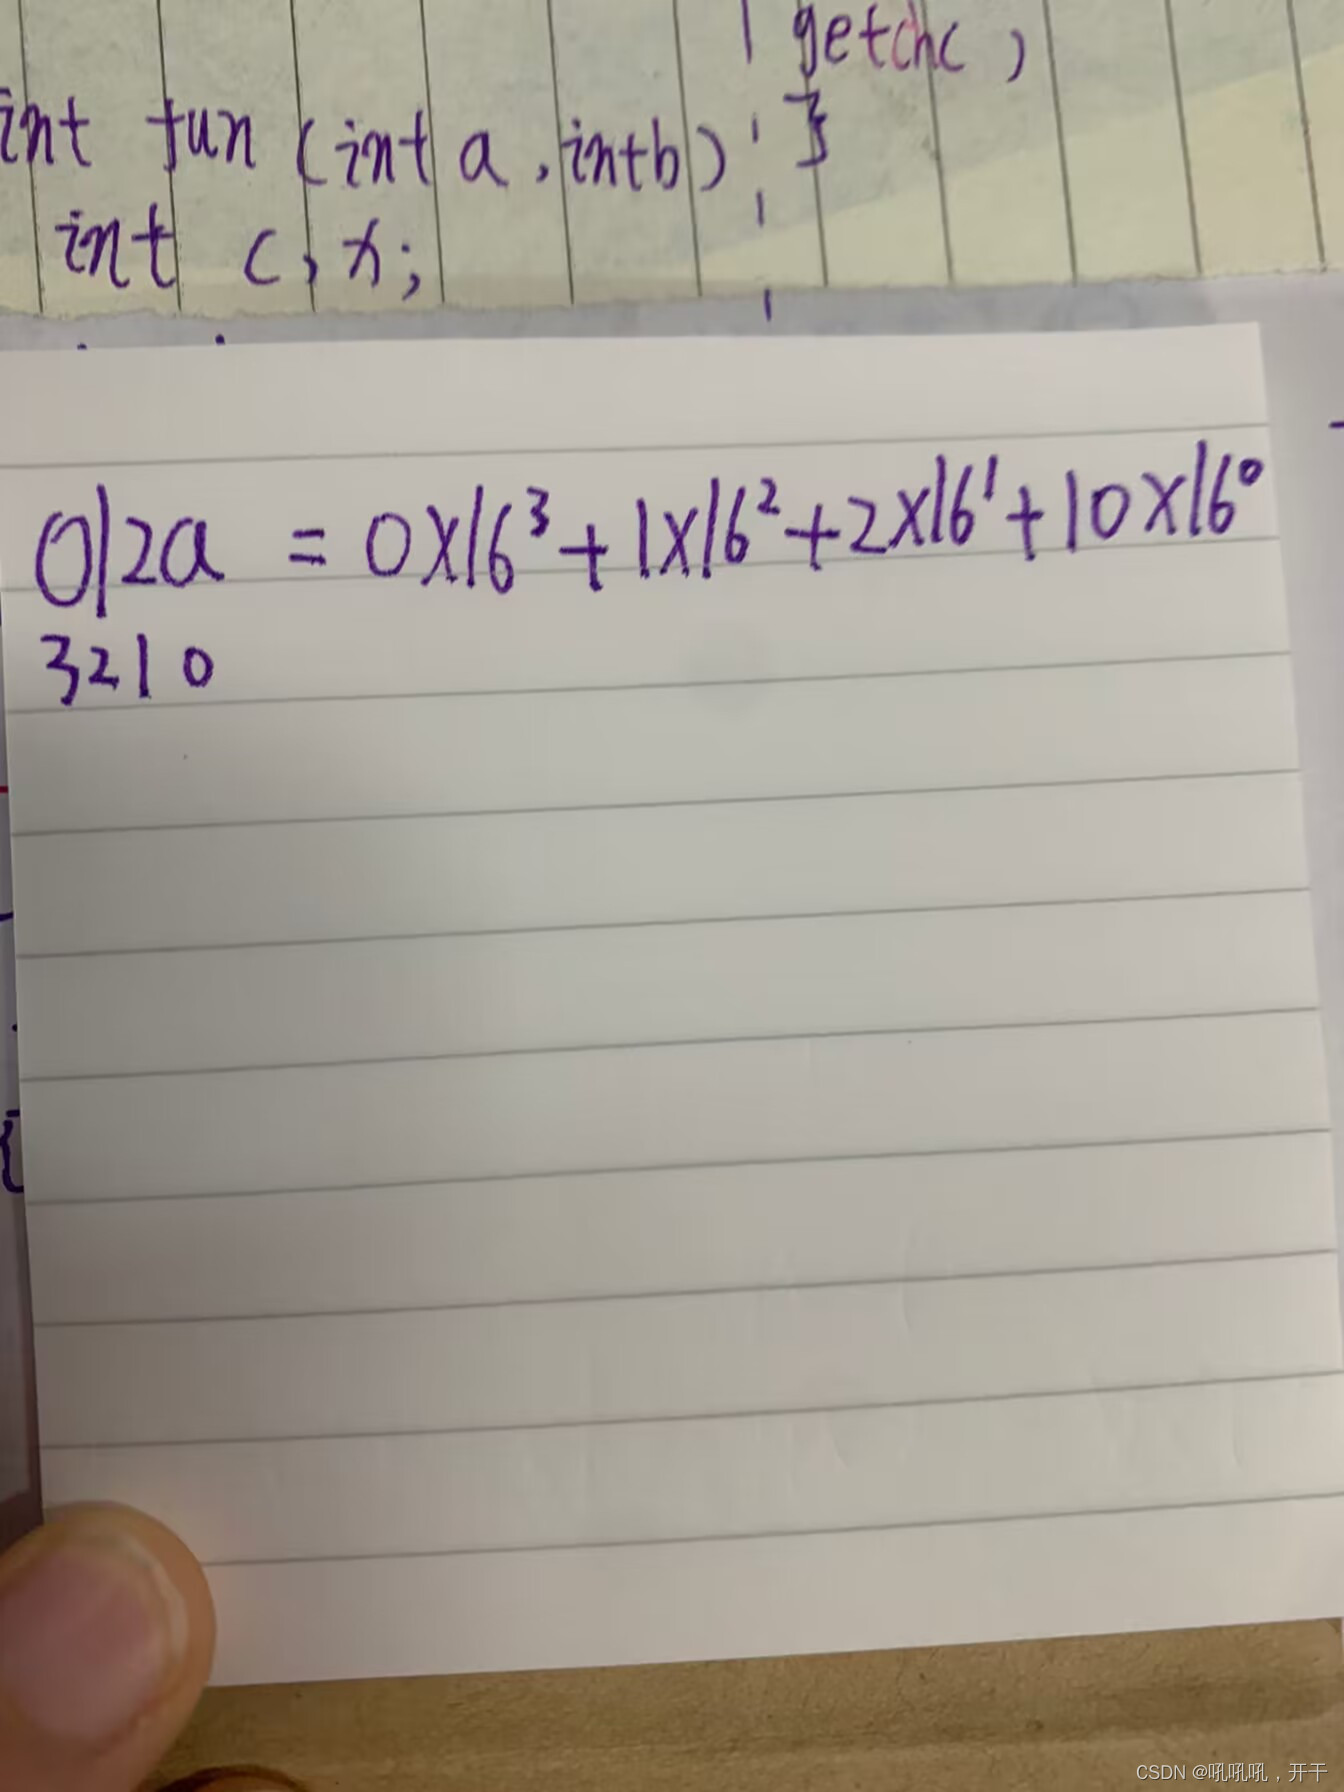 getchc )
int fun (int a, int b) }
int c, x;
012a = 0×16³ + 1×16² + 2×16¹ + 10×16⁰
3210
{
CSDN @吼吼吼，开干